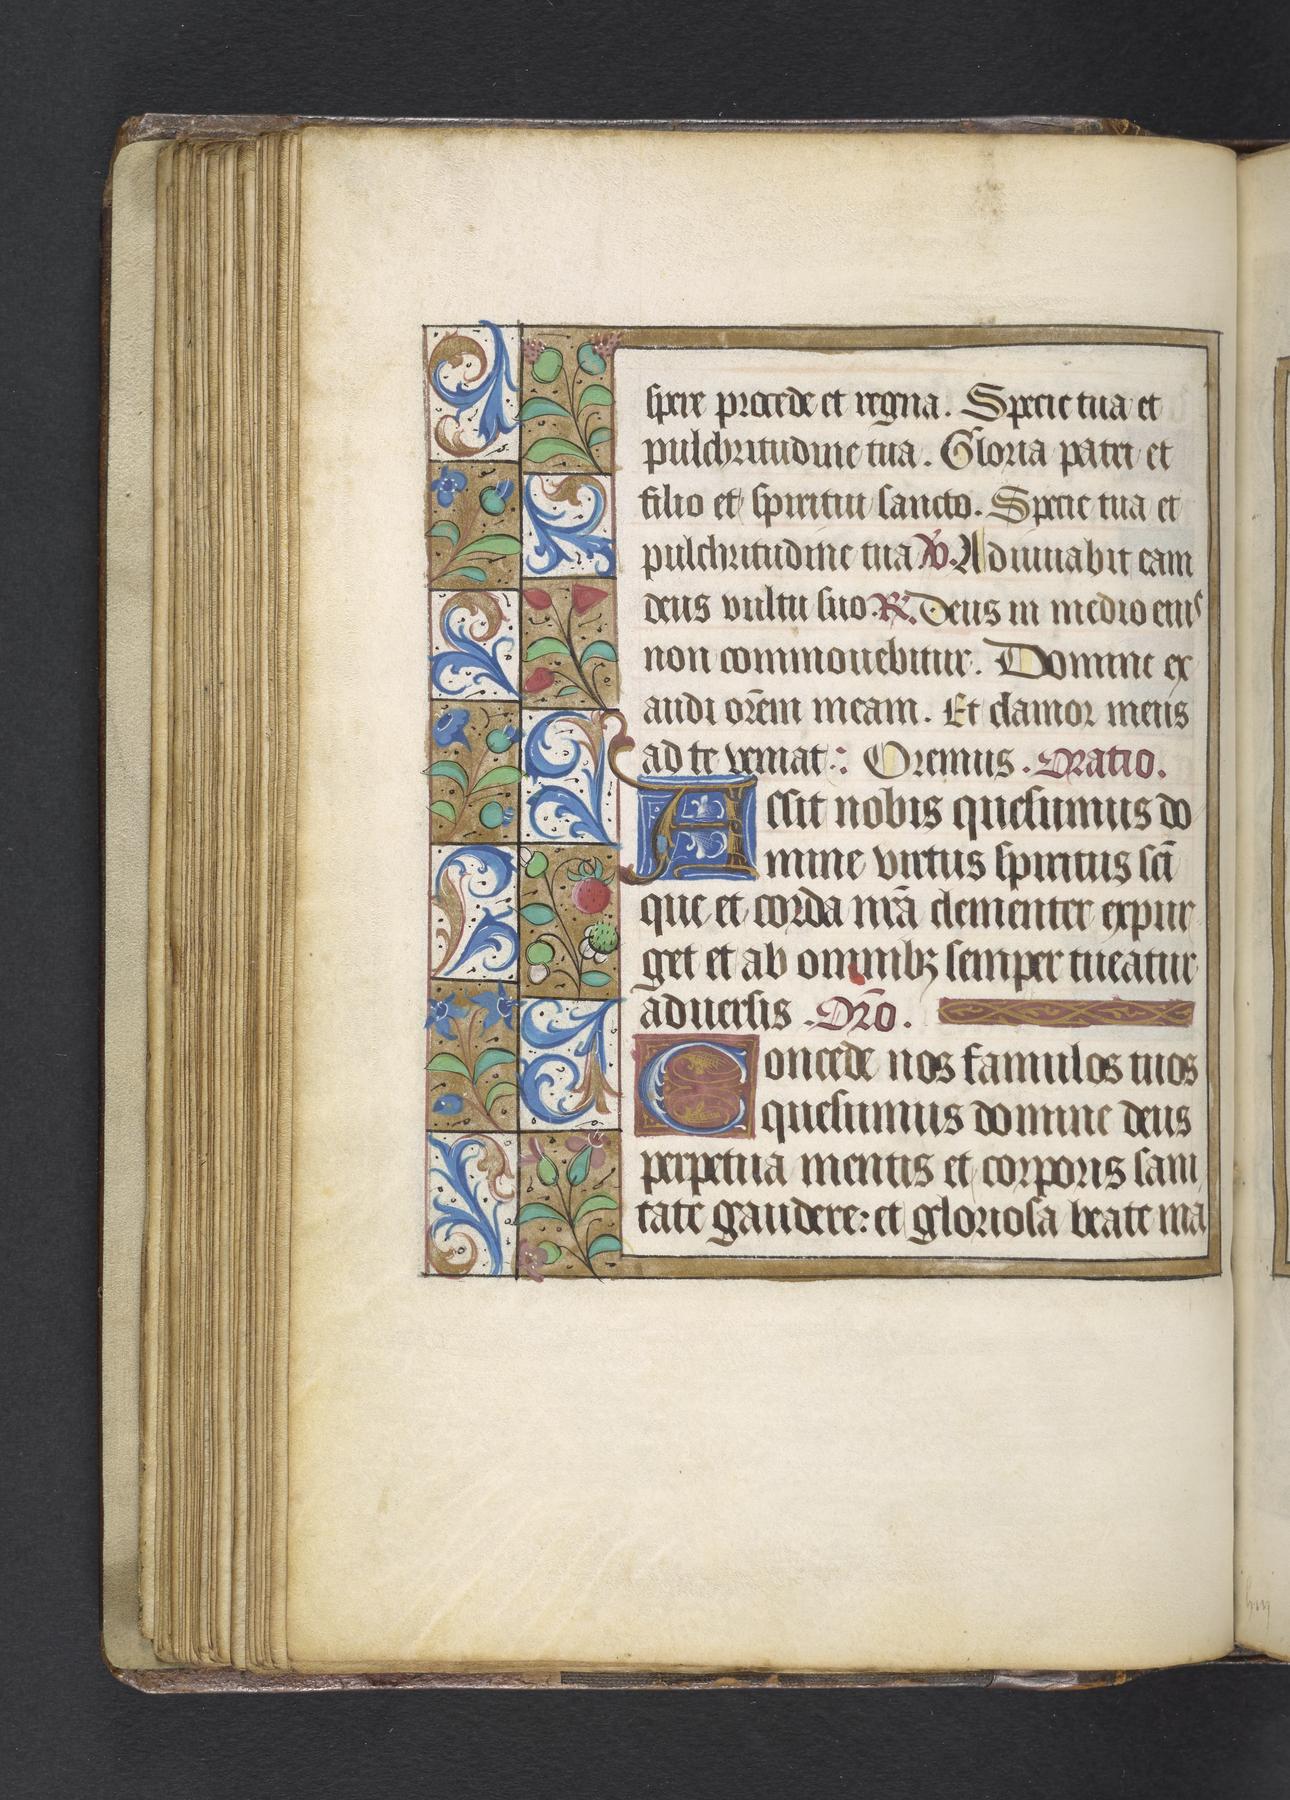 spere procede et regna. Specie tua et
pulchritudine tua. Gloria patri et
filio et spiritui sancto. Specie tua et
pulchritudine tua ℣. Adiuuabit eam
deus vultu suo. ℟. Deus in medio eius
non commouebitur. Domine ex
audi orōem meam. Et clamor meus
ad te veniat: Oremus. Oratio.
Assit nobis quesumus do
mine virtus spiritus scī
que et corda nrā clementer expur
get et ab omnibꝫ semper tueatur
aduersis. Orō.
Concede nos famulos tuos
quesumus domine deus
perpetua mentis et corporis sani
tate gaudere: et gloriosa beate ma